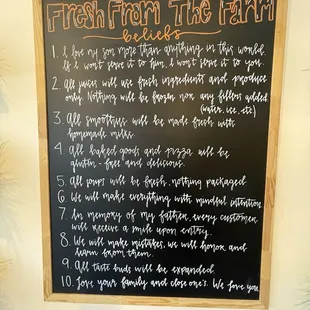 Fresh From The Farm
beliefs
1. I love my son more than anything in this world.
If I won't serve it to him, I won't serve it to you.
2. All juices will use fresh ingredients and produce
only. Nothing will be frozen nor any fillers added.
(water, ice, etc)
3. All smoothies will be made fresh with
homemade milks.
4. All baked goods and pizza will be
gluten-free and delicious.
5. All soups will be fresh, nothing packaged.
6. We will make everything with mindful intention.
7. In memory of my father, every customer
will receive a smile upon entry.
8. We will make mistakes, we will honor and
learn from them.
9. All taste buds will be expanded.
10. Love your family and close one's. We love you.